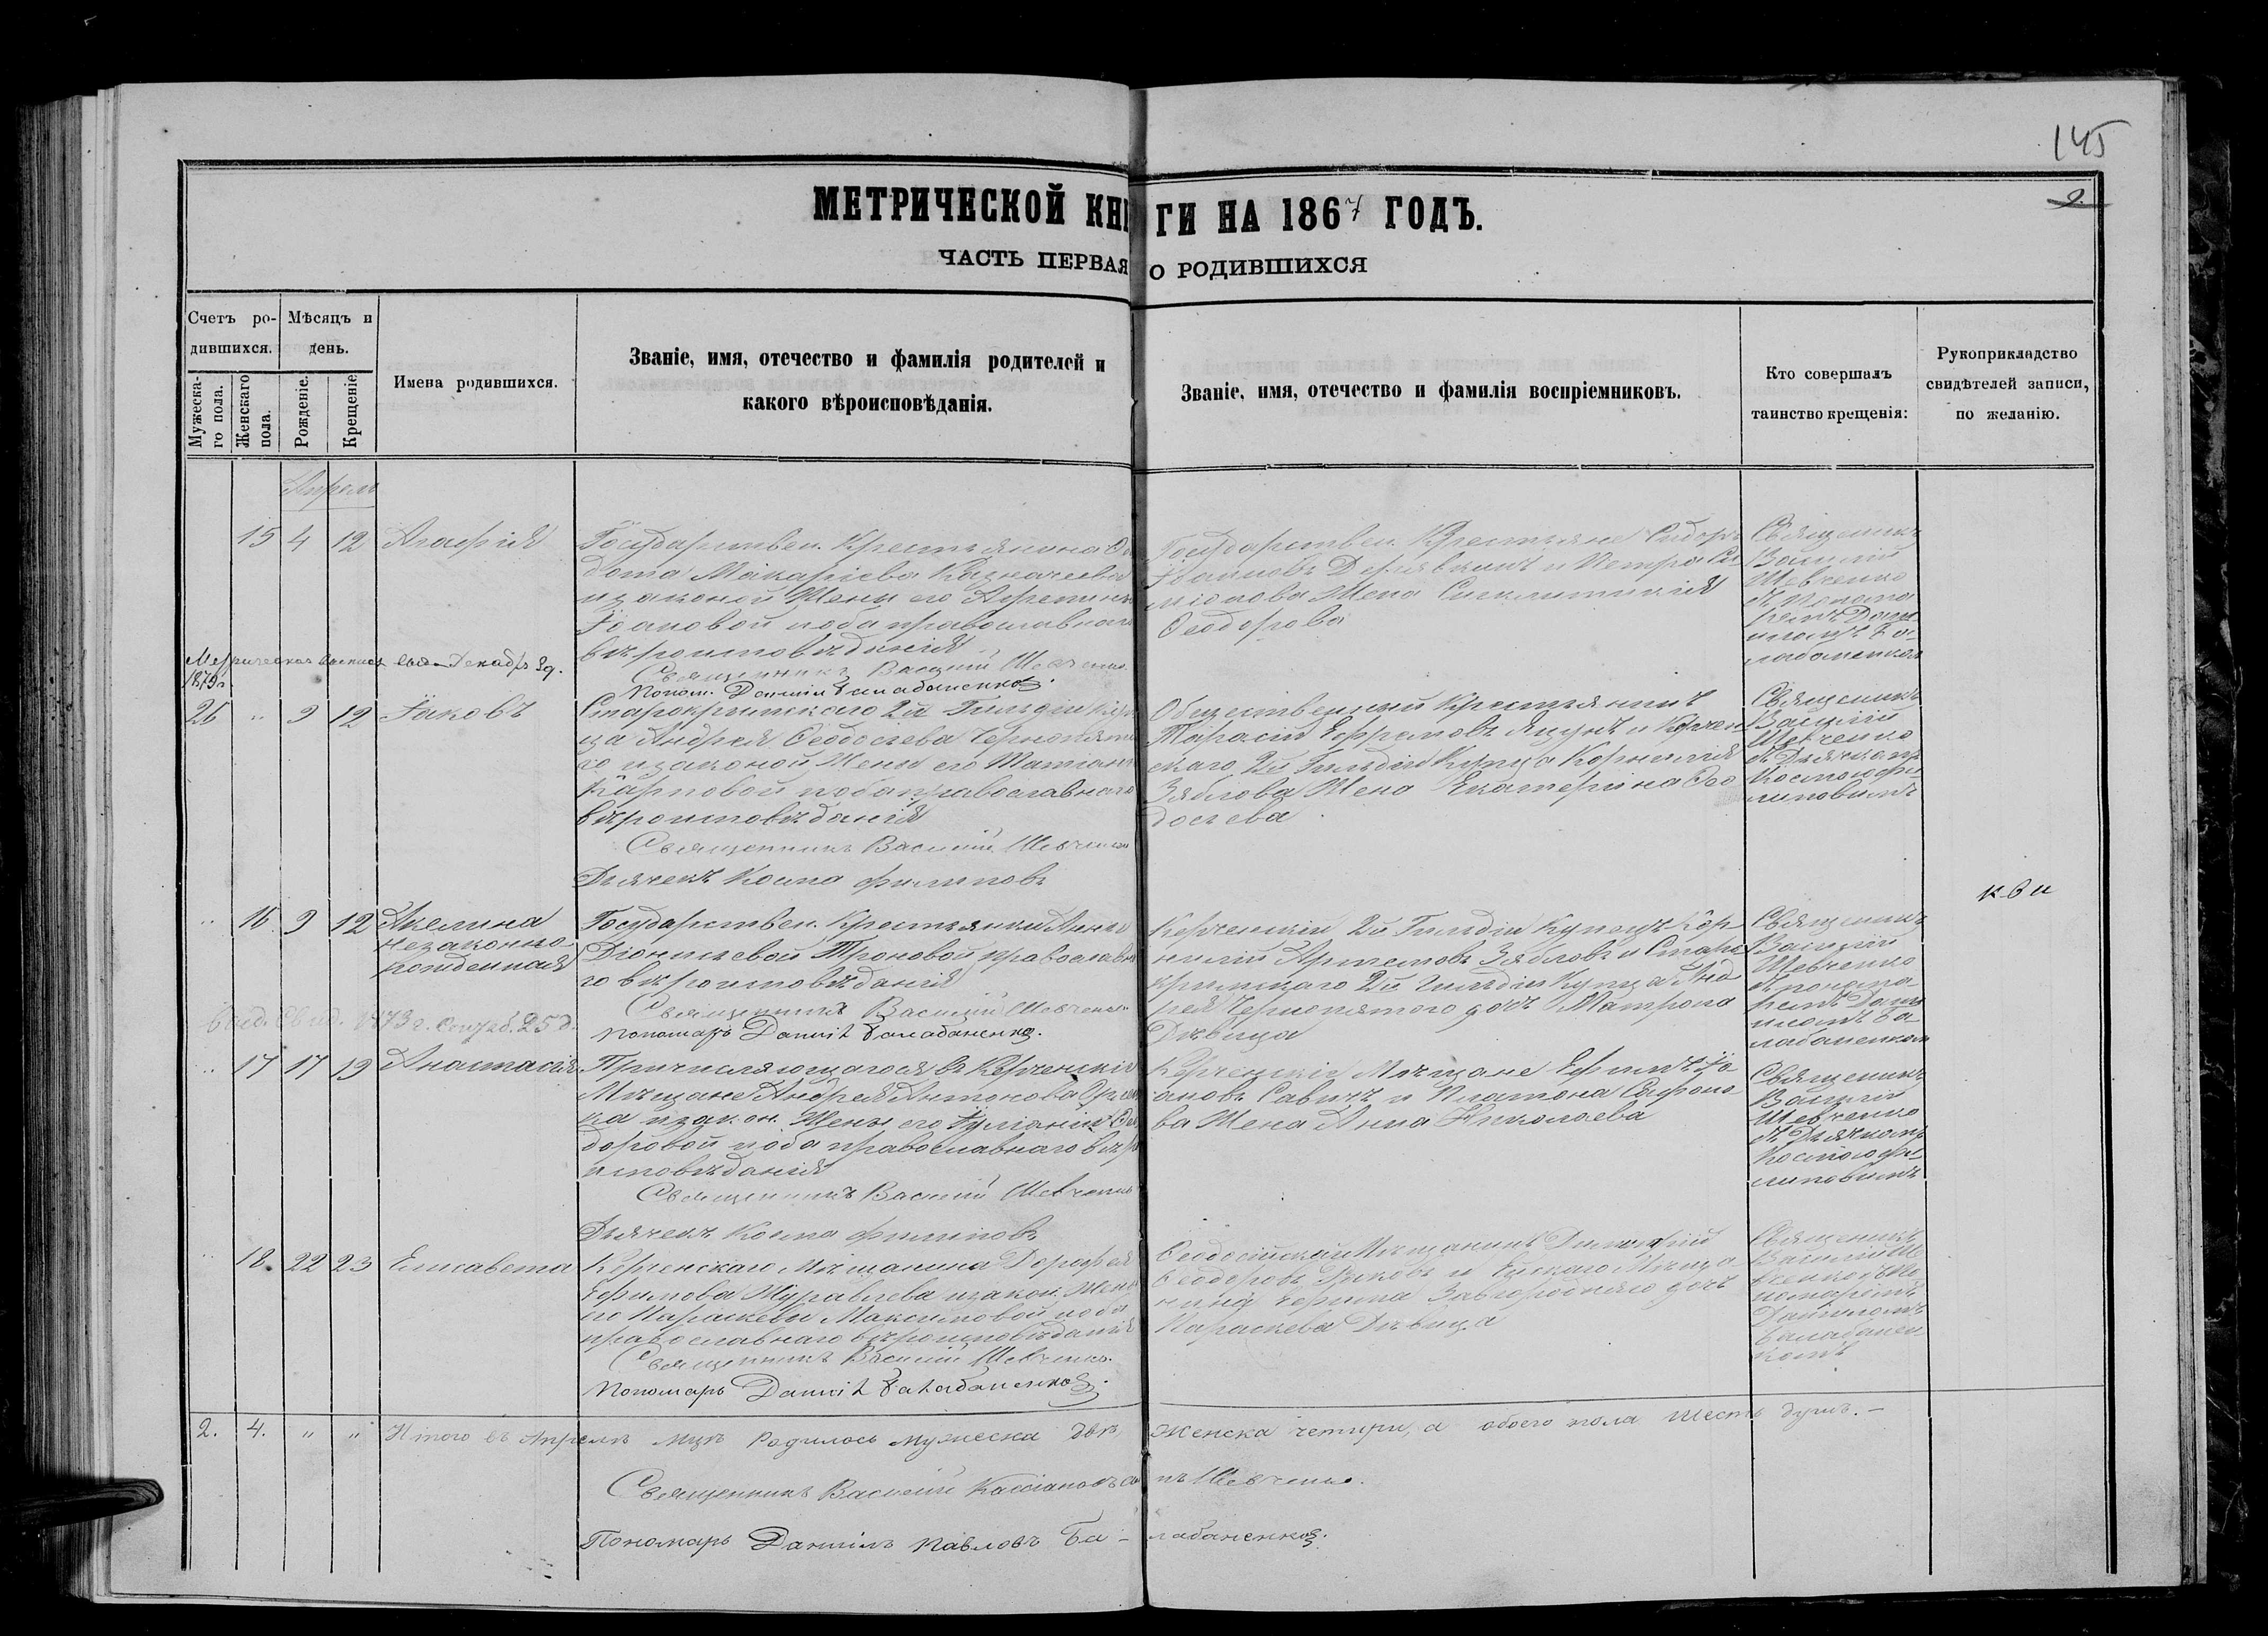 145
2.
МЕТРИЧЕСКОЙ КНИГИ НА 1867 ГОДЪ.
ЧАСТЬ ПЕРВАЯ О РОДИВШИХСЯ
Счетъ ро-
дившихся.
Мужеска-
го пола.
Женскаго
пола.
Мѣсяцъ и
день.
Рожденіе.
Крещеніе
Имена родившихся.
Званіе, имя, отечество и фамилія родителей и
какого вѣроисповѣданія.
Званіе, имя, отечество и фамилія воспріемниковъ.
Кто совершалъ
таинство крещенія:
Рукоприкладство
свидѣтелей записи,
по желанію.
Апрель
15 4 12 Агафія
Государствен. Крестьянина Ѳе
дота Макаріева Казначеева
и законой Жены его
Іоановой оба православнаго
вѣроисповѣданія
Священникъ Василій Шевченко
Поном. Даниилъ Балабаненко.
Государствен. Крестьяне Сидоръ
Іоановъ и Петра Си
міонова Жена Синклитикія
Ѳеодорова
Священникъ
Василій
Шевченко
съ Понома
ремъ Дани
иломъ Ба
лабаненком
Метрическая выпись Декабр 29.
1879 г.
26 " 9 12 Іаковъ
Старокрымскаго 2й Гильдіи Куп
ца Андрея Ѳеодосьева Чернопято
го и законой Жены его Татіаны
Карповой оба православнаго
вѣроисповѣданія
Священникъ Василій Шевченко
Дьячекъ Косма Филиповъ
Общественный Крестьянинъ
Тарасій Ефремовъ Яцунъ и Керчен
скаго 2й Гильдіи Купца Корнилія
Зяблова Жена Екатерина Ѳео
досьева
Священникъ
Василій
Шевченко
съ Дьячкомъ
Космою Фи
липовымъ
" 16 9 12 Акелина
незаконно
рожденная
Государствен. Крестьянки Анны
Діонисьевой Троновой православна
го вѣроисповѣданія
Священникъ Василій Шевченко
Пономарь Даниилъ Балабаненко.
Керченскій 2й Гильдіи Купецъ Кор
нилій Артемовъ Зябловъ и Старо
крымскаго 2й Гильдіи Купца Анд
рея Чернопятого дочь Матрона
Дѣвица
Священникъ
Василій
Шевченко
съ понома
ремъ Дани
иломъ Ба
лабаненком
к в и
1873 г. 25 д.
" 17 17 19 Анастасія
Причисляющагося въ Керченскіе
Мѣщане Андрея Антонова
ка и закон. Жены его Іуліаніи Ѳео
доровой оба православнаго вѣро
исповѣданія
Священникъ Василій Шевченко
Дьячекъ Косма Филиповъ
Керченскіе Мѣщане Ефимъ Іо
ановъ Савичъ и Платона Сафоно
ва Жена Анна Николаева
Священникъ
Василій
Шевченко
съ Дьячкомъ
Космою Фи
липовымъ
" 18. 22 23 Елисавета
Керченскаго Мѣщанина Дорофея
Ефимова Журавлева и закон. Жены
его Параскевы Максимовой оба
православнаго вѣроисповѣданія
Священникъ Василій Шевченко.
Пономарь Даниилъ Балабаненко.
Ѳеодосійскій Мѣщанинъ Димитрій
Ѳеодоровъ и Ейскаго Мѣща
нина Ефима Завгородняго дочь
Параскева Дѣвица
Священникъ
Василій Ше
вченко съ По
номаремъ
Данииломъ
Балабанен
комъ
2. 4. " " Итого въ Апрелѣ мцѣ родилось мужеска двѣ, женска четыри, а обоего пола шесть душъ. —
Священникъ Василій Кассіановъ сынъ Шевченко.
Пономарь Даниилъ Павловъ Ба-лабаненко.